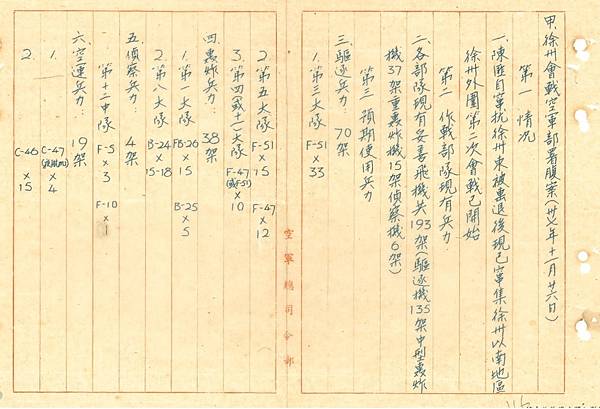 甲、徐州會戰空軍部署腹案(卅七年十一月廿六日)
第一 情況
一、陳匪自竄抗徐州東被轟退後現已竄集徐州以南地區
徐州外圍第二次會戰已開始
第二 作戰部隊現有兵力
二、各部隊現有妥善飛機共193架(驅逐機135架中型轟炸
機37架重轟炸機15架偵察機6架)
第三 預期使用兵力
三、驅逐兵力：70架
1. 第三大隊 F-51×33
2. 第五大隊 F-51×15 F-47×12
3. 第四(或十一)大隊 F-47(或F-51)×10
四、轟炸兵力：38架
1. 第一大隊 FB-26×15 B-25×5
2. 第八大隊 B-24×15-18
五、偵察兵力：4架
第十二中隊 F-5×3 F-10×1
六、空運兵力：19架
1. C-47×4
2. C-46×15
空軍總司令部